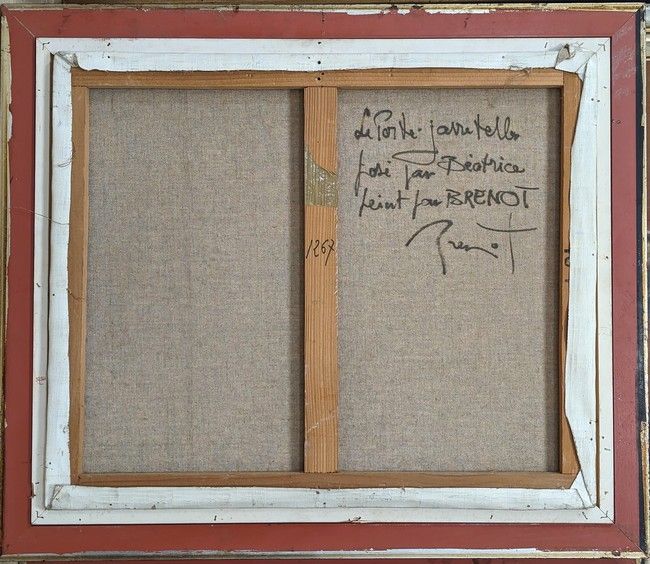 Le Porte-jarretelles
posé par Béatrice
peint par BRENOT
Brenot
1267